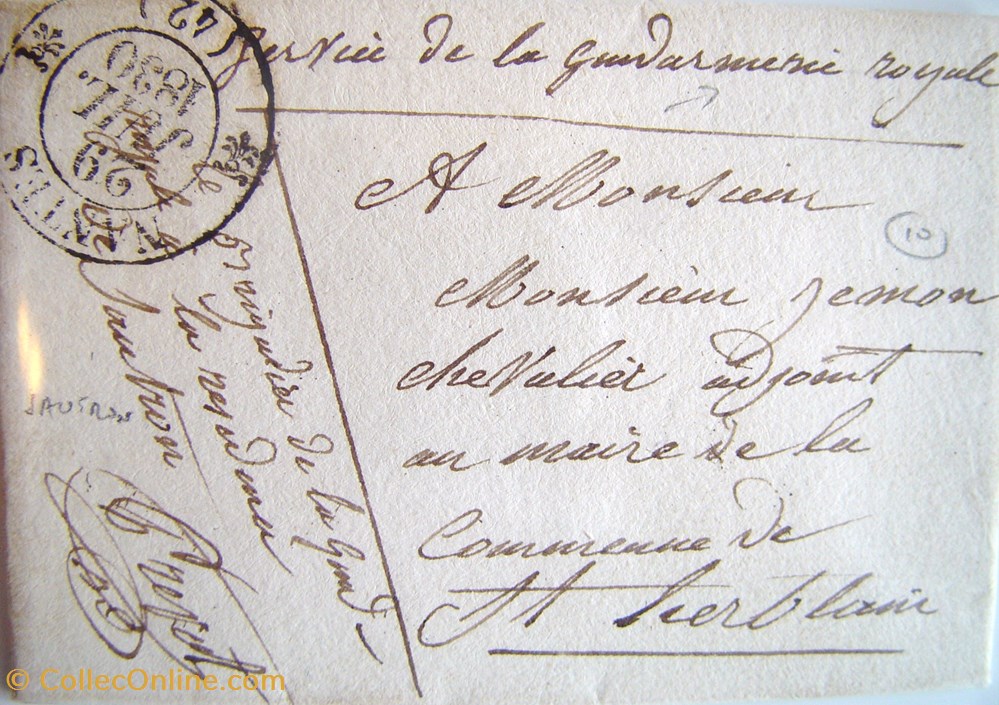 Service de la Gendarmerie royale
A Monsieur
Monsieur Jemon
chevalier adjoint
au maire de la
Commenne de
St herblain
10
le Brigadier de la Gend
la residence
de Sautron
SAUTRON
NANTES
29
JUIL
1830
(42)
© CollecOnline.com